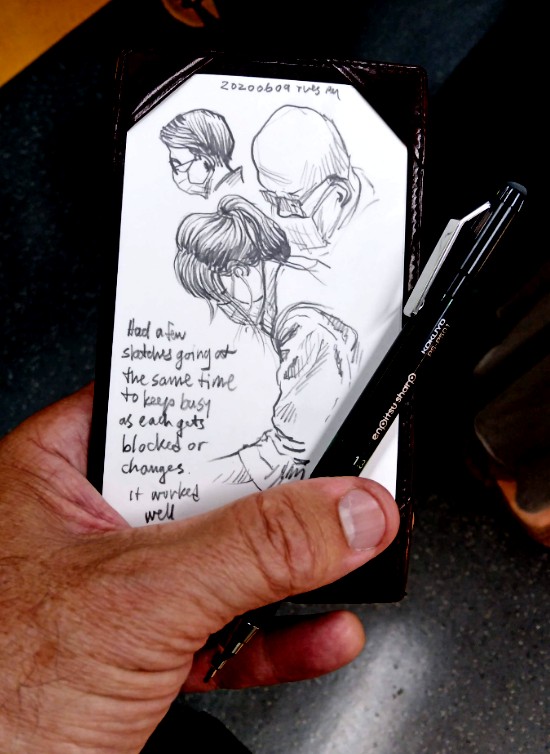 20200609 Tues AM
Had a few
sketches going at
the same time
to keep busy
as each gets
blocked or
changes.
it worked
well
KOKUYO
enpitsu sharp
1.3